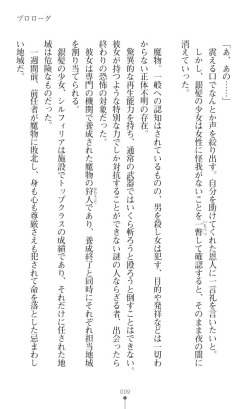 プロローグ
「あ、あの……」
　震える口でなんとか声を絞り出す。自分を助けてくれた恩人に一言礼を言いたいと。
　しかし、銀髪の少女は女性に怪我がないことを一瞥して確認すると、そのまま夜の闇に
消えていった。
　魔物。一般への認知はされているものの、男を殺し女は犯す、目的や発祥などは一切わ
からない正体不明の存在。
　驚異的な再生能力を持ち、通常の武器ではいくら斬ろうと殴ろうと倒すことはできない。
彼女が持つような特別な力でしか対抗することができない謎の人ならざる者。出会ったら
終わりの恐怖の対象である。
　彼女は専門の機関で養成された魔物の狩人であり、養成終了と同時にそれぞれ担当地域
を割り当てられる。
　銀髪の少女、シルフィリアは施設でトップクラスの成績であり、それだけに任された地
域は危険なものだった。
　一週間前、前任者が魔物に敗北し、身も心も尊厳さえも犯されて命を落とした忌まわし
い地域だ。
009